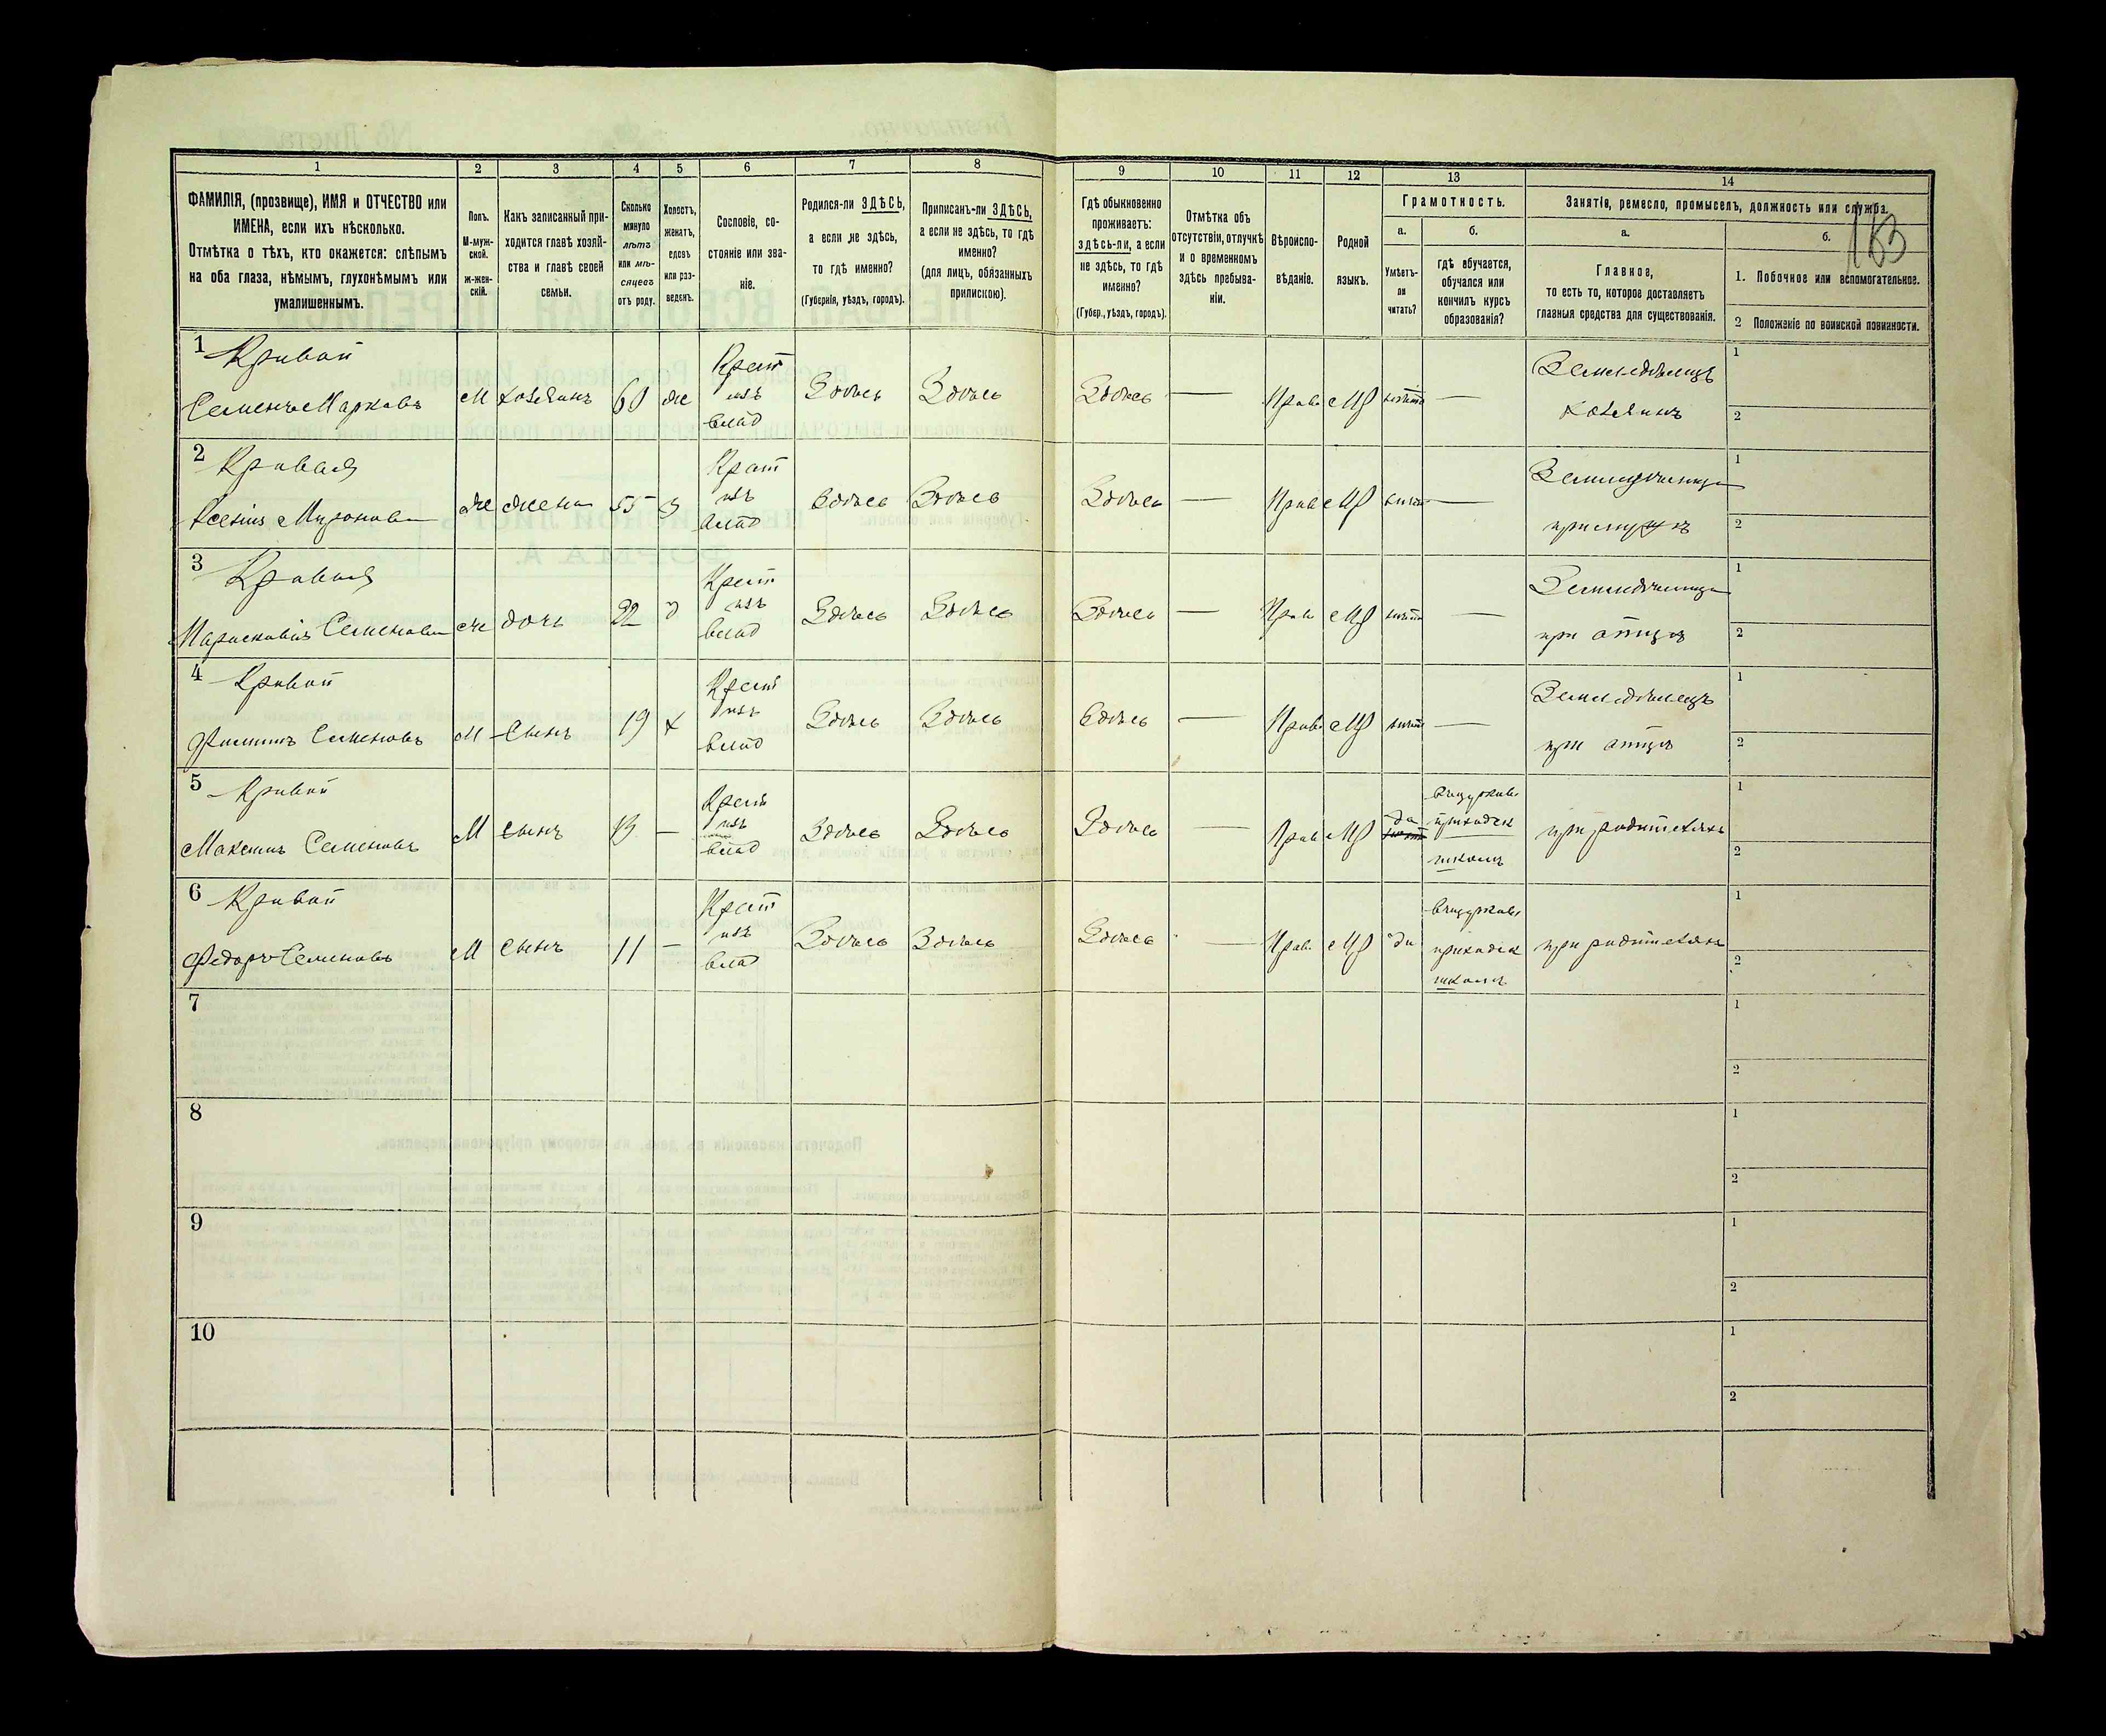 1 2 3 4 5 6 7 8 9 10 11 12 13 14
ФАМИЛІЯ, (прозвище), ИМЯ и ОТЧЕСТВО или
ИМЕНА, если ихъ нѣсколько.
Отмѣтка о тѣхъ, кто окажется: слѣпымъ
на оба глаза, нѣмымъ, глухонѣмымъ или
умалишеннымъ.
Полъ.
М-муж-
ской.
ж-жен-
скій.
Какъ записанный при-
ходится главѣ хозяй-
ства и главѣ своей
семьи.
Сколько
минуло
лѣтъ
или мѣ-
сяцевъ
отъ роду.
Холостъ,
женатъ,
вдовъ
или раз-
веденъ.
Сословіе, со-
стояніе или зва-
ніе.
Родился-ли ЗДѢСЬ,
а если не здѣсь,
то гдѣ именно?
(Губернія, уѣздъ, городъ).
Приписанъ-ли ЗДѢСЬ,
а если не здѣсь, то гдѣ
именно?
(для лицъ, обязанныхъ
припискою).
Гдѣ обыкновенно
проживаетъ:
здѣсь-ли, а если
не здѣсь, то гдѣ
именно?
(Губер., уѣздъ, городъ).
Отмѣтка объ
отсутствіи, отлучкѣ
и о временномъ
здѣсь пребыва-
ніи.
Вѣроиспо-
вѣданіе.
Родной
языкъ.
Грамотность.
а.
Умѣетъ-
ли
читать?
б.
гдѣ обучается,
обучался или
кончилъ курсъ
образованія?
Занятіе, ремесло, промыселъ, должность или служба.
163
а.
Главное,
то есть то, которое доставляетъ
главныя средства для существованія.
б.
1. Побочное или вспомогательное.
2 Положеніе по воинской повинности.
1 Кривой Крест Земледѣлецъ 1
Семенъ Марковъ М хозяинъ 60 же изъ Здѣсь Здѣсь Здѣсь — Прав МР нѣтъ — хозяинъ
влад 2
2 Кривая Крест 1
Ксенія Миронова же жена 55 з изъ Здѣсь Здѣсь Здѣсь — Прав МР нѣтъ —
влад 2
3 Кривая Крест 1
Парасковія Семенова же дочь 22 изъ Здѣсь Здѣсь Здѣсь — Прав МР нѣтъ — при отцѣ
влад 2
4 Кривой Крест Земледѣлецъ 1
Филиппъ Семеновъ М Сынъ 19 х изъ Здѣсь Здѣсь Здѣсь — Прав МР нѣтъ — при отцѣ
влад 2
5 Кривой Крест 1
Максимъ Семеновъ М сынъ 13 — изъ Здѣсь Здѣсь Здѣсь — Прав МР да приходск при родителяхъ
влад школѣ 2
6 Кривой Крест 1
Федоръ Семеновъ М сынъ 11 — изъ Здѣсь Здѣсь Здѣсь — Прав. МР да приходск при родителяхъ
влад школѣ 2
7 1
2
8 1
2
9 1
2
10 1
2